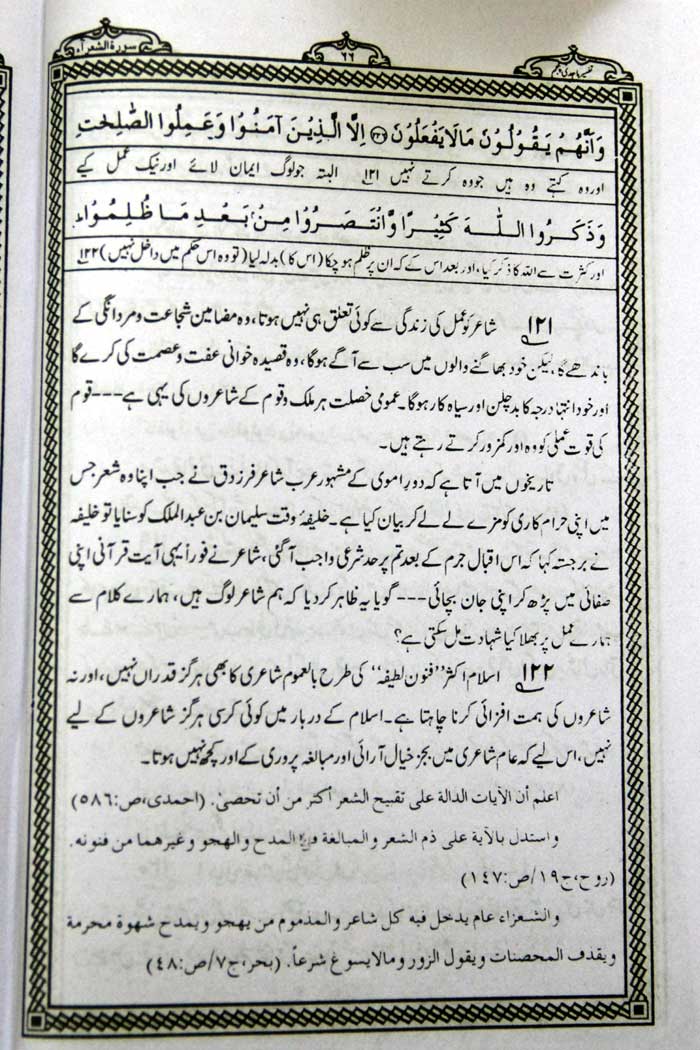 تفسیر ماجدی پنجم
۶۶
سورة الشعراء
وَاَنَّهُمْ يَقُوْلُوْنَ مَالَا يَفْعَلُوْنَ ﴿۲۲۶﴾ اِلَّا الَّذِيْنَ اٰمَنُوْا وَعَمِلُوا الصّٰلِحٰتِ
اور وہ کہتے وہ ہیں جو وہ کرتے نہیں ۱۲۱ البتہ جو لوگ ایمان لائے اور نیک عمل کیے
وَذَكَرُوا اللّٰهَ كَثِيْرًا وَّانْتَصَرُوْا مِنْۢ بَعْدِ مَا ظُلِمُوْا ؕ
اور کثرت سے اللہ کا ذکر کیا، اور بعد اس کے کہ ان پر ظلم ہو چکا (اس کا) بدلہ لیا (تو وہ اس حکم میں داخل نہیں) ۱۲۲
۱۲۱ شاعر کو عمل کی زندگی سے کوئی تعلق ہی نہیں ہوتا، وہ مضامین شجاعت و مردانگی کے
باندھے گا، لیکن خود بھاگنے والوں میں سب سے آگے ہوگا، وہ قصیدہ خوانی عفت و عصمت کی کرے گا
اور خود انتہا درجہ کا بدچلن اور سیاہ کار ہوگا۔ عمومی خصلت ہر ملک و قوم کے شاعروں کی یہی ہے---قوم
کی قوت عملی کو وہ اور کمزور کرتے رہتے ہیں۔
تاریخوں میں آتا ہے کہ دورِ اموی کے مشہور عرب شاعر فرزدق نے جب اپنا وہ شعر جس
میں اپنی حرام کاری کو مزے لے لے کر بیان کیا ہے۔ خلیفۂ وقت سلیمان بن عبدالملک کو سنایا تو خلیفہ
نے برجستہ کہا کہ اس اقبال جرم کے بعد تم پر حد شرعی واجب آگئی، شاعر نے فوراً یہی آیت قرآنی اپنی
صفائی میں پڑھ کر اپنی جان بچائی---گویا یہ ظاہر کردیا کہ ہم شاعر لوگ ہیں، ہمارے کلام سے
ہمارے عمل پر بھلا کیا شہادت مل سکتی ہے؟
۱۲۲ اسلام اکثر ”فنون لطیفہ“ کی طرح بالعموم شاعری کا بھی ہرگز قدرداں نہیں، اور نہ
شاعروں کی ہمت افزائی کرنا چاہتا ہے۔ اسلام کے دربار میں کوئی کرسی ہرگز شاعروں کے لیے
نہیں، اس لیے کہ عام شاعری میں بجز خیال آرائی اور مبالغہ پروری کے اور کچھ نہیں ہوتا۔
اعلم أن الآيات الدالة على تقبيح الشعر أكثر من أن تحصىٰ. (احمدی، ص:۵۸۶)
و استدل بالآية على ذم الشعر و المبالغة في المدح و الهجو و غيرهما من فنونه.
(روح، ج۱۹/ص:۱۴۷)
و الشعراء عام يدخل فيه كل شاعر و المذموم من يهجو و يمدح شهوة محرمة
و يقذف المحصنات و يقول الزور و مالا يسوغ شرعاً. (بحر، ج۷/ص:۴۸)